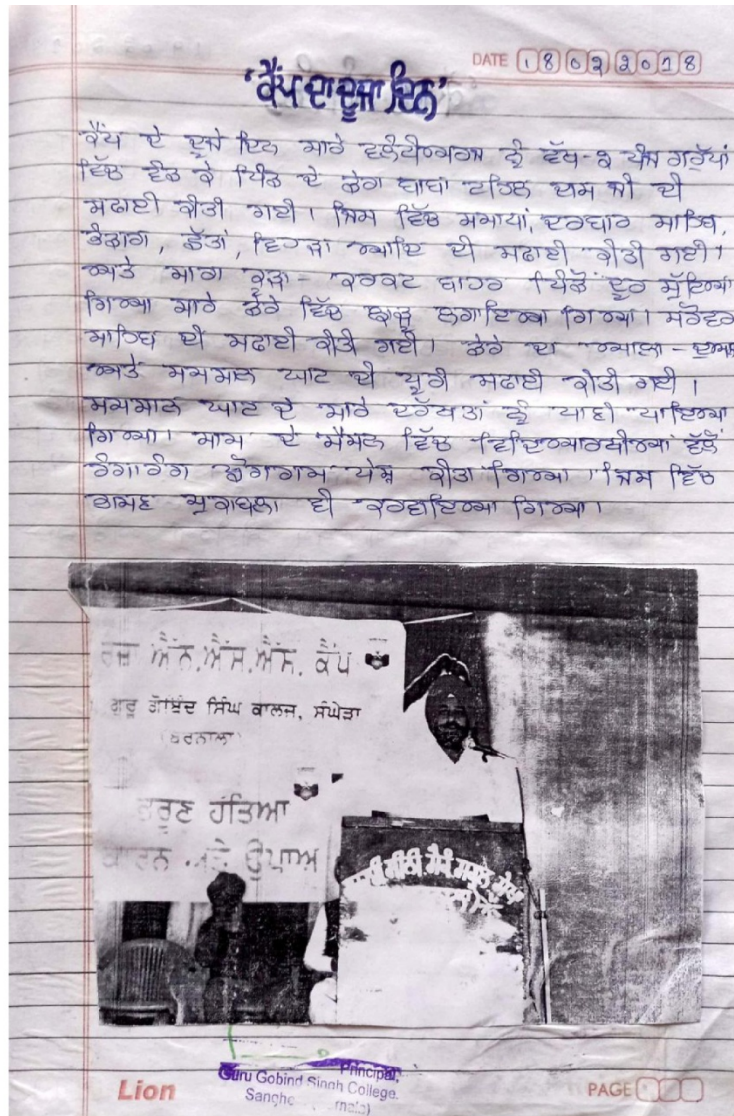 DATE 18022018
'ਕੈਂਪ ਦਾ ਦੂਜਾ ਦਿਨ'
ਕੈਂਪ ਦੇ ਦੂਜੇ ਦਿਨ ਸਾਰੇ ਵਲੰਟੀਅਰਜ ਨੂੰ ਵੱਖ-੨ ਪੰਜ ਗਰੁੱਪਾਂ
ਵਿੱਚ ਵੰਡ ਕੇ ਪਿੰਡ ਦੇ ਡੇਰਾ ਬਾਬਾ ਟਹਿਲ ਦਾਸ ਜੀ ਦੀ
ਸਫਾਈ ਕੀਤੀ ਗਈ। ਜਿਸ ਵਿੱਚ ਸਮਾਧਾਂ, ਦਰਬਾਰ ਸਾਹਿਬ,
ਭੰਡਾਰਾ, ਛੱਤਾਂ, ਵਿਹੜਾ ਆਦਿ ਦੀ ਸਫਾਈ ਕੀਤੀ ਗਈ।
ਅਤੇ ਸਾਰਾ ਕੂੜਾ-ਕਰਕਟ ਬਾਹਰ ਪਿੰਡੋਂ ਦੂਰ ਸੁੱਟਿਆ
ਗਿਆ ਸਾਰੇ ਡੇਰੇ ਵਿੱਚ ਝਾੜੂ ਲਗਾਇਆ ਗਿਆ। ਸਰੋਵਰ
ਸਾਹਿਬ ਦੀ ਸਫਾਈ ਕੀਤੀ ਗਈ। ਡੇਰੇ ਦਾ ਆਲਾ-ਦੁਆਲਾ
ਅਤੇ ਸ਼ਮਸ਼ਾਨ ਘਾਟ ਦੀ ਪੂਰੀ ਸਫਾਈ ਕੀਤੀ ਗਈ।
ਸ਼ਮਸ਼ਾਨ ਘਾਟ ਦੇ ਸਾਰੇ ਦਰੱਖਤਾਂ ਨੂੰ ਪਾਣੀ ਪਾਇਆ
ਗਿਆ। ਸ਼ਾਮ ਦੇ ਸੈਸ਼ਨ ਵਿੱਚ ਵਿਦਿਆਰਥੀਆਂ ਵੱਲੋਂ
ਰੰਗਾਰੰਗ ਪ੍ਰੋਗਰਾਮ ਪੇਸ਼ ਕੀਤਾ ਗਿਆ ਜਿਸ ਵਿੱਚ
ਭਾਸ਼ਣ ਮੁਕਾਬਲਾ ਵੀ ਕਰਵਾਇਆ ਗਿਆ।
ਐੱਨ.ਐੱਸ.ਐੱਸ. ਕੈਂਪ
ਗੁਰੂ ਗੋਬਿੰਦ ਸਿੰਘ ਕਾਲਜ, ਸੰਘੇੜਾ
(ਬਰਨਾਲਾ)
ਭਰੂਣ ਹੱਤਿਆ
ਕਾਰਨ ਅਤੇ ਉਪਾਅ
Principal,
Guru Gobind Singh College,
Lion
PAGE